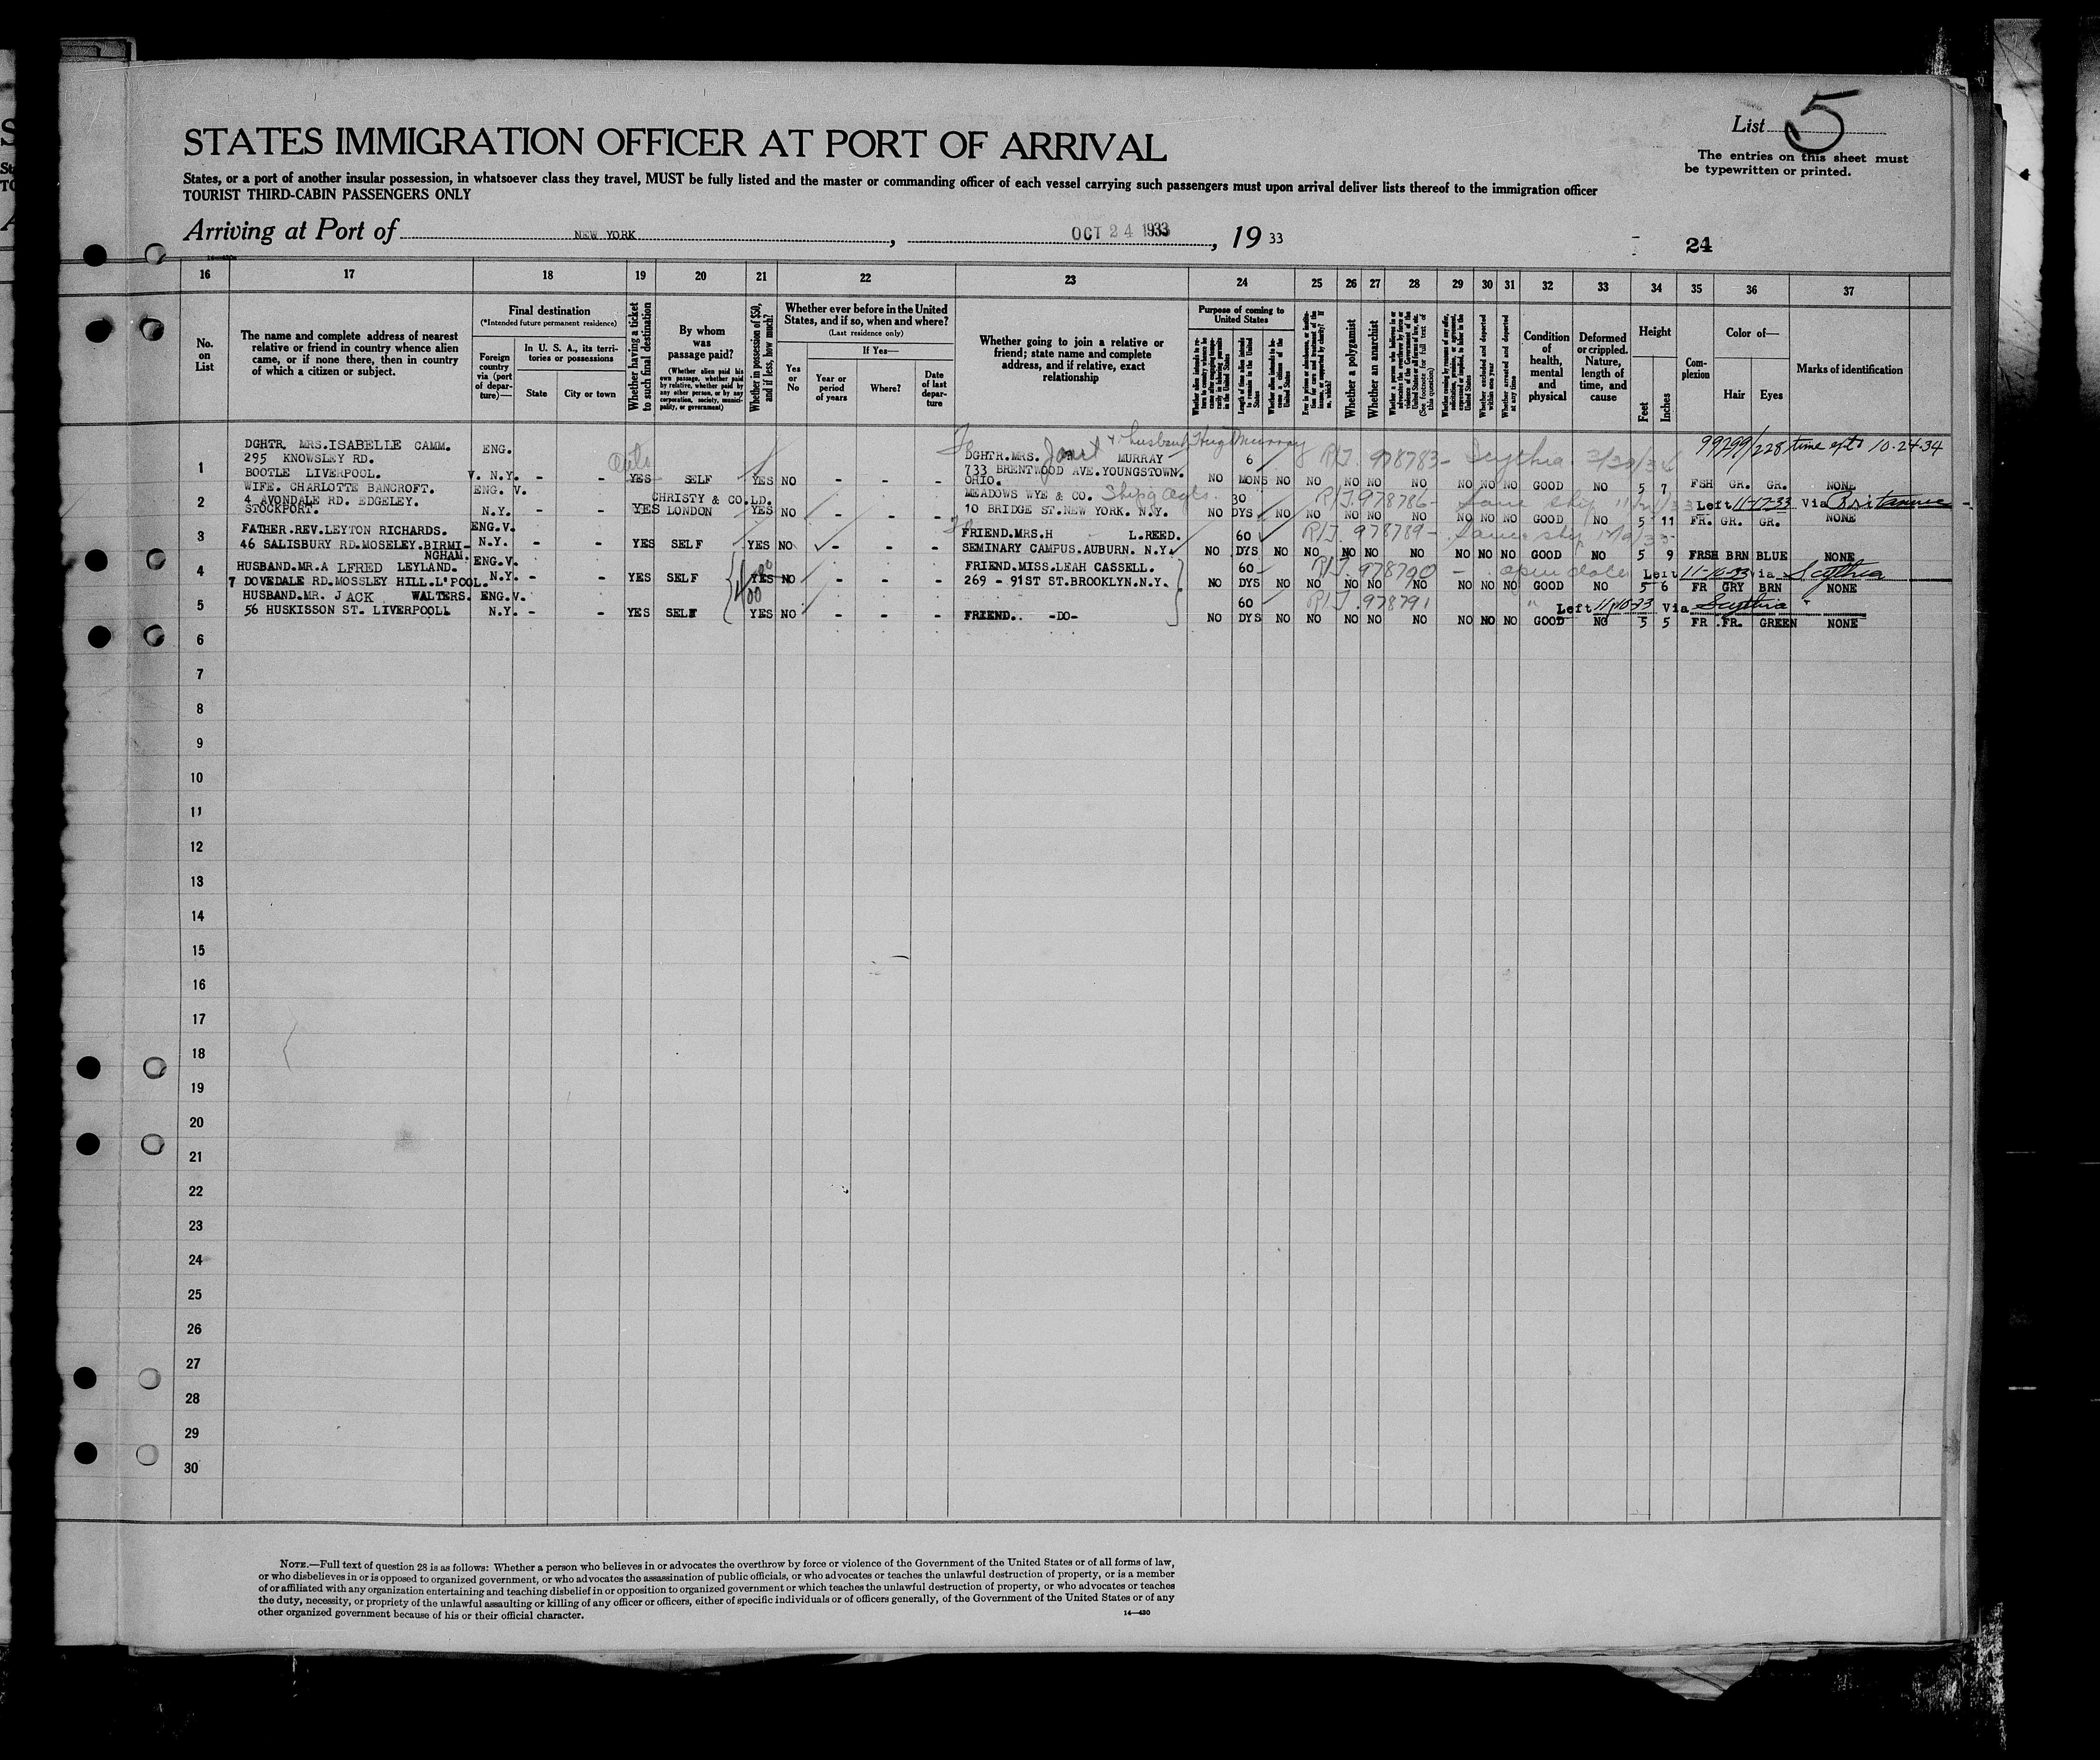 List 5
The entries on this sheet must
be typewritten or printed.
STATES IMMIGRATION OFFICER AT PORT OF ARRIVAL
States, or a port of another insular possession, in whatsoever class they travel, MUST be fully listed and the master or commanding officer of each vessel carrying such passengers must upon arrival deliver lists thereof to the immigration officer
TOURIST THIRD-CABIN PASSENGERS ONLY
Arriving at Port of NEW YORK, OCT 24 1933, 19 33
24
16 17 18 19 20 21 22 23 24 25 26 27 28 29 30 31 32 33 34 35 36 37
No. on List
The name and complete address of nearest
relative or friend in country whence alien
came, or if none there, then in country
of which a citizen or subject.
Final destination
(*Intended future permanent residence)
Foreign country via (port of departure)—
In U. S. A., its territories or possessions
State
City or town
Whether having a ticket to such final destination
By whom was passage paid?
(Whether alien paid his own passage, whether paid by relative, whether paid by any other person, or by any corporation, society, municipality, or government)
Whether in possession of $50, and if less, how much?
Whether ever before in the United
States, and if so, when and where?
(Last residence only)
Yes or No
If Yes—
Year or period of years
Where?
Date of last departure
Whether going to join a relative or
friend; state name and complete
address, and if relative, exact
relationship
Purpose of coming to United States
Length of time alien intends to remain in the United States
Whether alien intends to become a citizen of the United States
Whether a polygamist
Whether an anarchist
Whether excluded and deported within one year
Whether arrested and deported at any time
Condition of health, mental and physical
Deformed or crippled. Nature, length of time, and cause
Height
Feet
Inches
Complexion
Color of—
Hair
Eyes
Marks of identification
Janet & husband Hugh Murray
99299/228 time extd 10-24-34
DGHTR. MRS. ISABELLE CAMM. ENG. DGHTR.MRS. MURRAY 6 R/T. 978783- Scythia
295 KNOWSLEY RD. 733 BRENTWOOD AVE.YOUNGSTOWN.
1 BOOTLE LIVERPOOL. V. N.Y. - - YES SELF YES NO - - - OHIO. NO MONS NO NO NO NO NO NO NO NO GOOD NO 5 7 FSH GR. GR. NONE
WIFE. CHARLOTTE BANCROFT. ENG. V. CHRISTY & CO.LD. MEADOWS WYE & CO. Shipg Agts. 30 R/T. 978786- same ship Left 11-17-33 Via Britannic
2 4 AVONDALE RD. EDGELEY. STOCKPORT. N.Y. YES LONDON YES NO - - - 10 BRIDGE ST.NEW YORK. N.Y. NO DYS NO NO NO NO NO NO NO NO GOOD NO 5 11 FR. GR. GR. NONE
FATHER.REV.LEYTON RICHARDS. ENG.V. FRIEND.MRS.H L.REED. 60 R/T. 978789- same ship
3 46 SALISBURY RD.MOSELEY.BIRMINGHAM. N.Y. - - YES SELF YES NO - - - SEMINARY CAMPUS.AUBURN. N.Y. NO DYS NO NO NO NO NO NO NO NO GOOD NO 5 9 FRSH BRN BLUE NONE
HUSBAND.MR.A LFRED LEYLAND. ENG.V. FRIEND.MISS.LEAH CASSELL. 60 R/T. 978790 - open date Left 11-10-33 via Scythia
4 7 DOVEDALE RD.MOSSLEY HILL.L'POOL. N.Y. - - YES SELF YES NO - - - 269 - 91ST ST.BROOKLYN.N.Y. NO DYS NO NO NO NO NO NO NO NO GOOD NO 5 6 FR GRY BRN NONE
HUSBAND.MR. JACK WALTERS. ENG.V. 60 R/T. 978791 " Left 11/10-33 Via Scythia
5 56 HUSKISSON ST. LIVERPOOL N.Y. - - YES SELF YES NO - - - FRIEND. -DO- NO DYS NO NO NO NO NO NO NO NO GOOD NO 5 5 FR .FR. GREEN NONE
6
7
8
9
10
11
12
13
14
15
16
17
18
19
20
21
22
23
24
25
26
27
28
29
30
NOTE.—Full text of question 28 is as follows: Whether a person who believes in or advocates the overthrow by force or violence of the Government of the United States or of all forms of law,
or who disbelieves in or is opposed to organized government, or who advocates the assassination of public officials, or who advocates or teaches the unlawful destruction of property, or is a member
of or affiliated with any organization entertaining and teaching disbelief in or opposition to organized government or which teaches the unlawful destruction of property, or who advocates or teaches
the duty, necessity, or propriety of the unlawful assaulting or killing of any officer or officers, either of specific individuals or of officers generally, of the Government of the United States or of any
other organized government because of his or their official character.
14—430